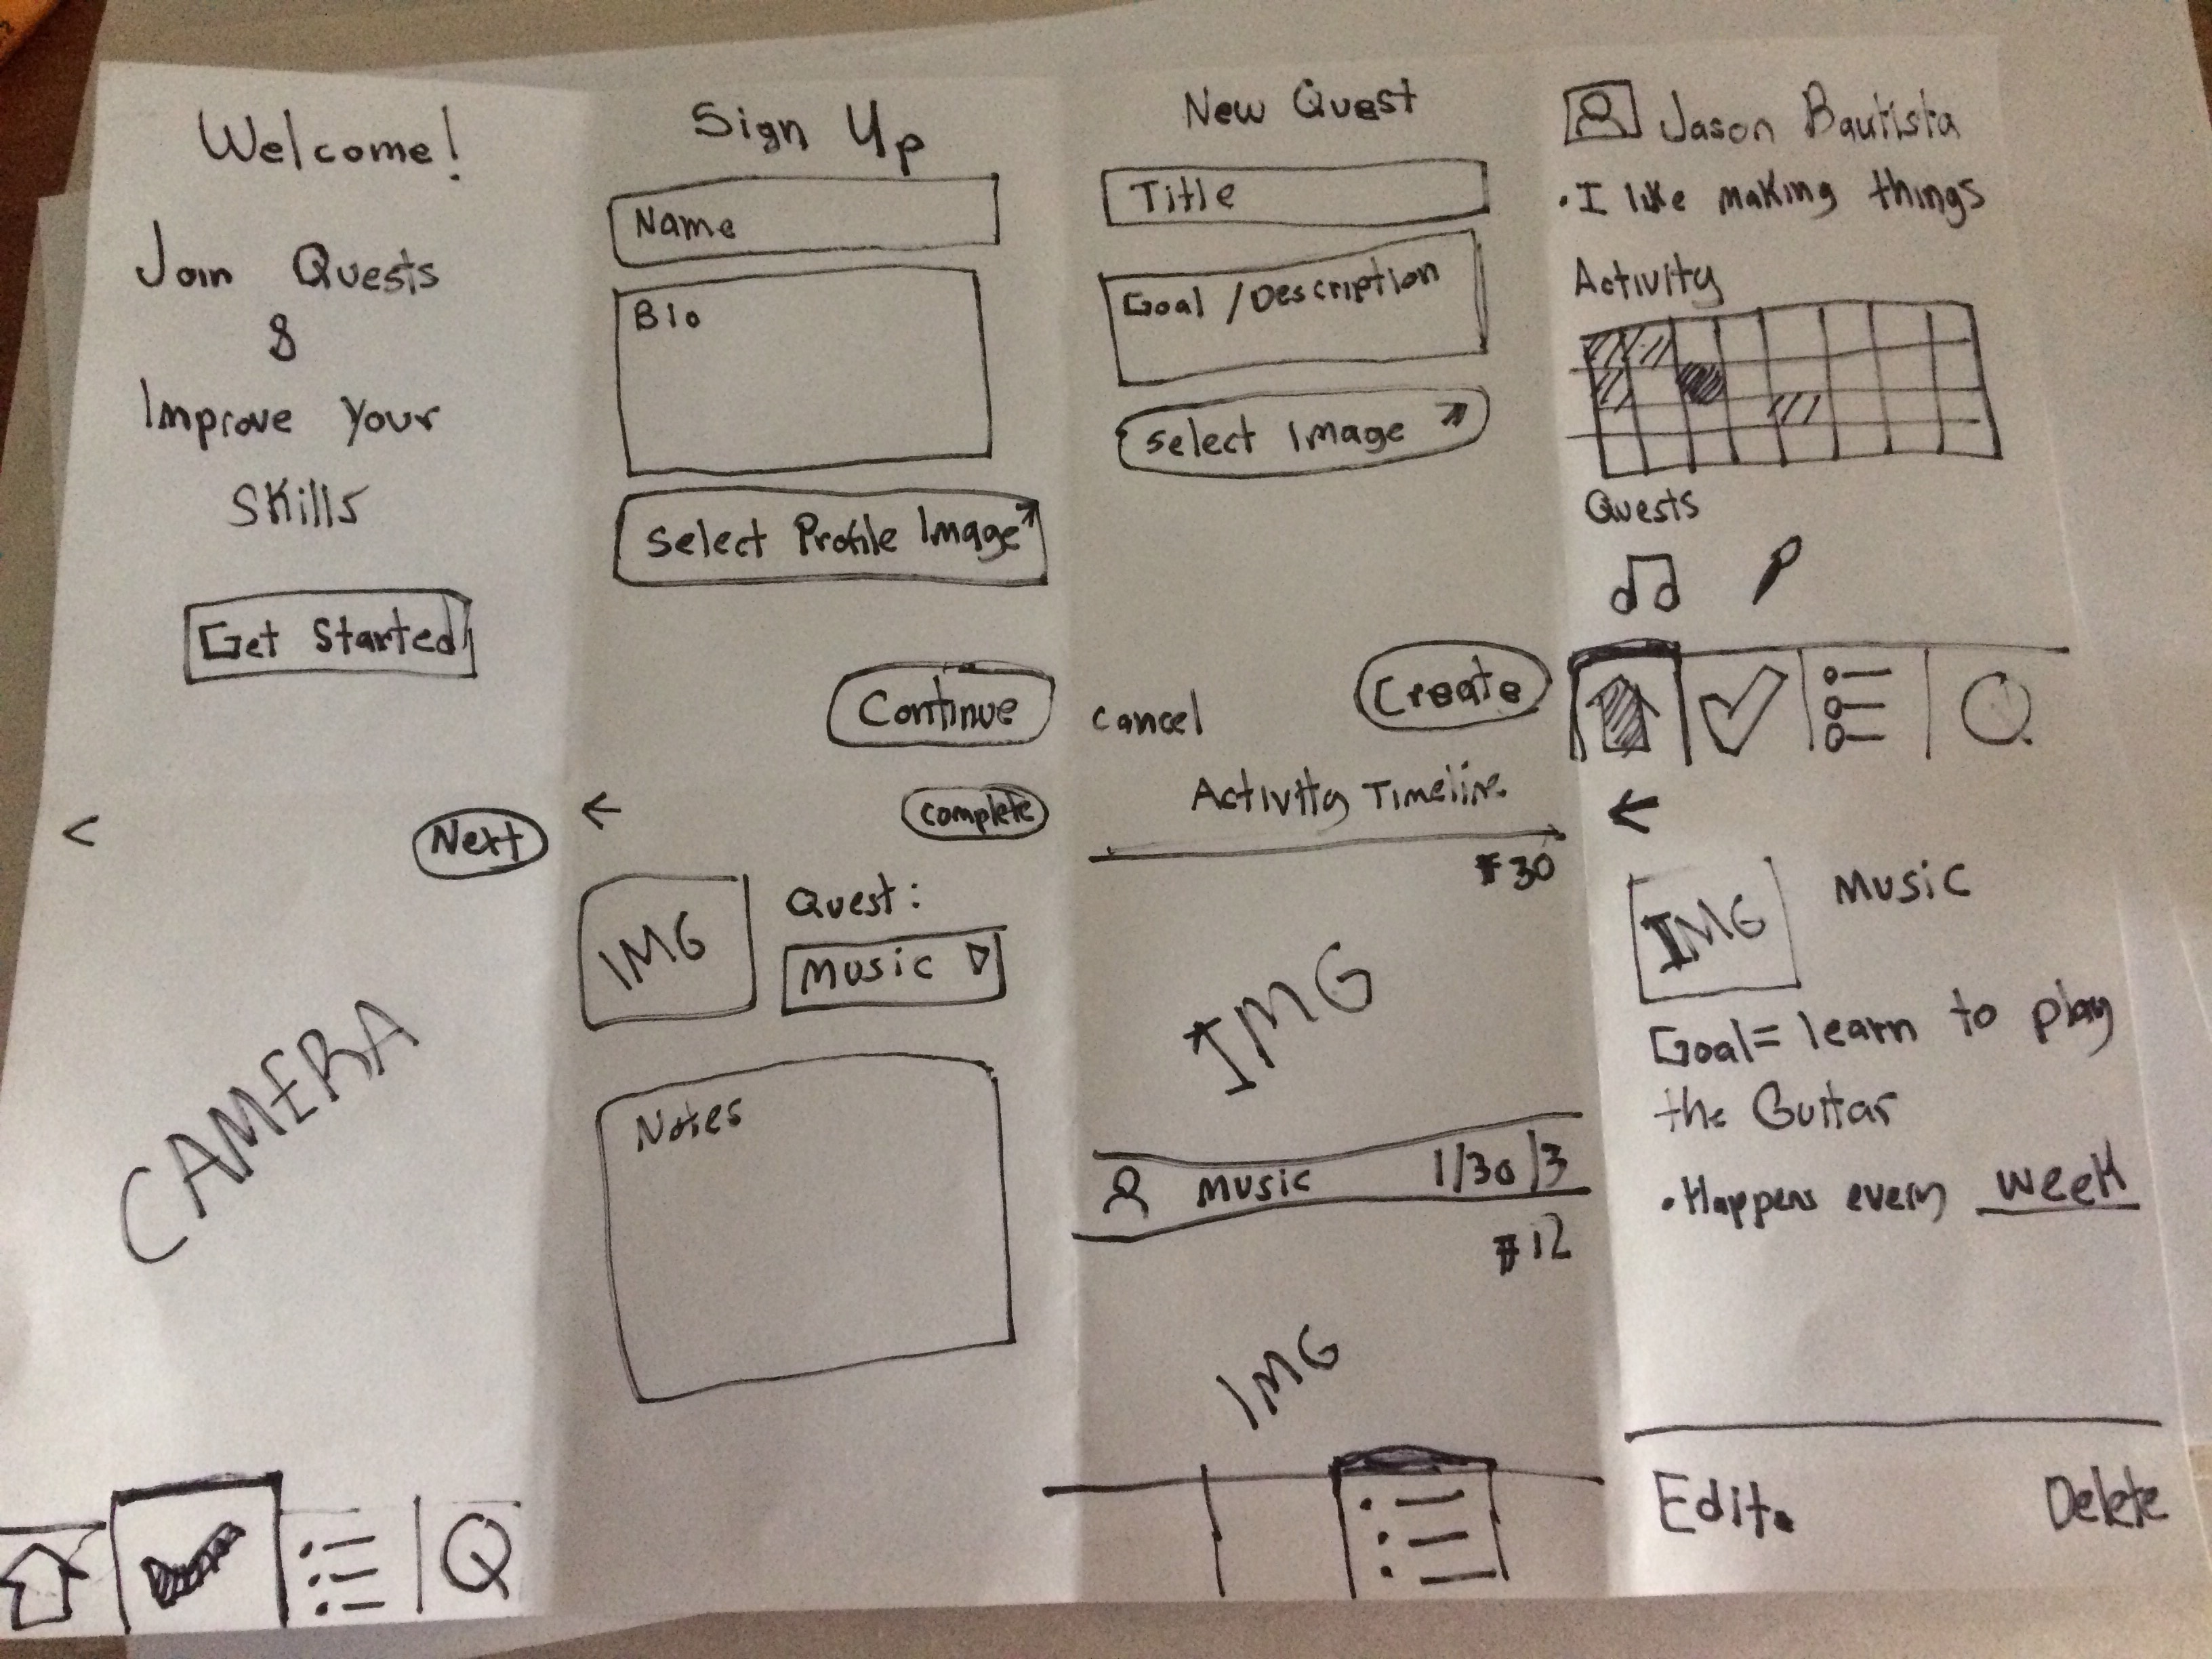 Welcome!
Join Quests
&
Improve Your
Skills
Get Started
Sign Up
Name
Bio
Select Profile Image
Continue
New Quest
Title
Goal / Description
Select Image
Cancel
Create
Jason Bautista
• I like making things
Activity
Quests
<
Next
CAMERA
Q
←
Complete
IMG
Quest:
Music
Notes
Activity Timeline
#30
IMG
Music 1/30/3
#12
IMG
←
IMG
Music
Goal = learn to play
the Guitar
• Happens every week
Edit
Delete